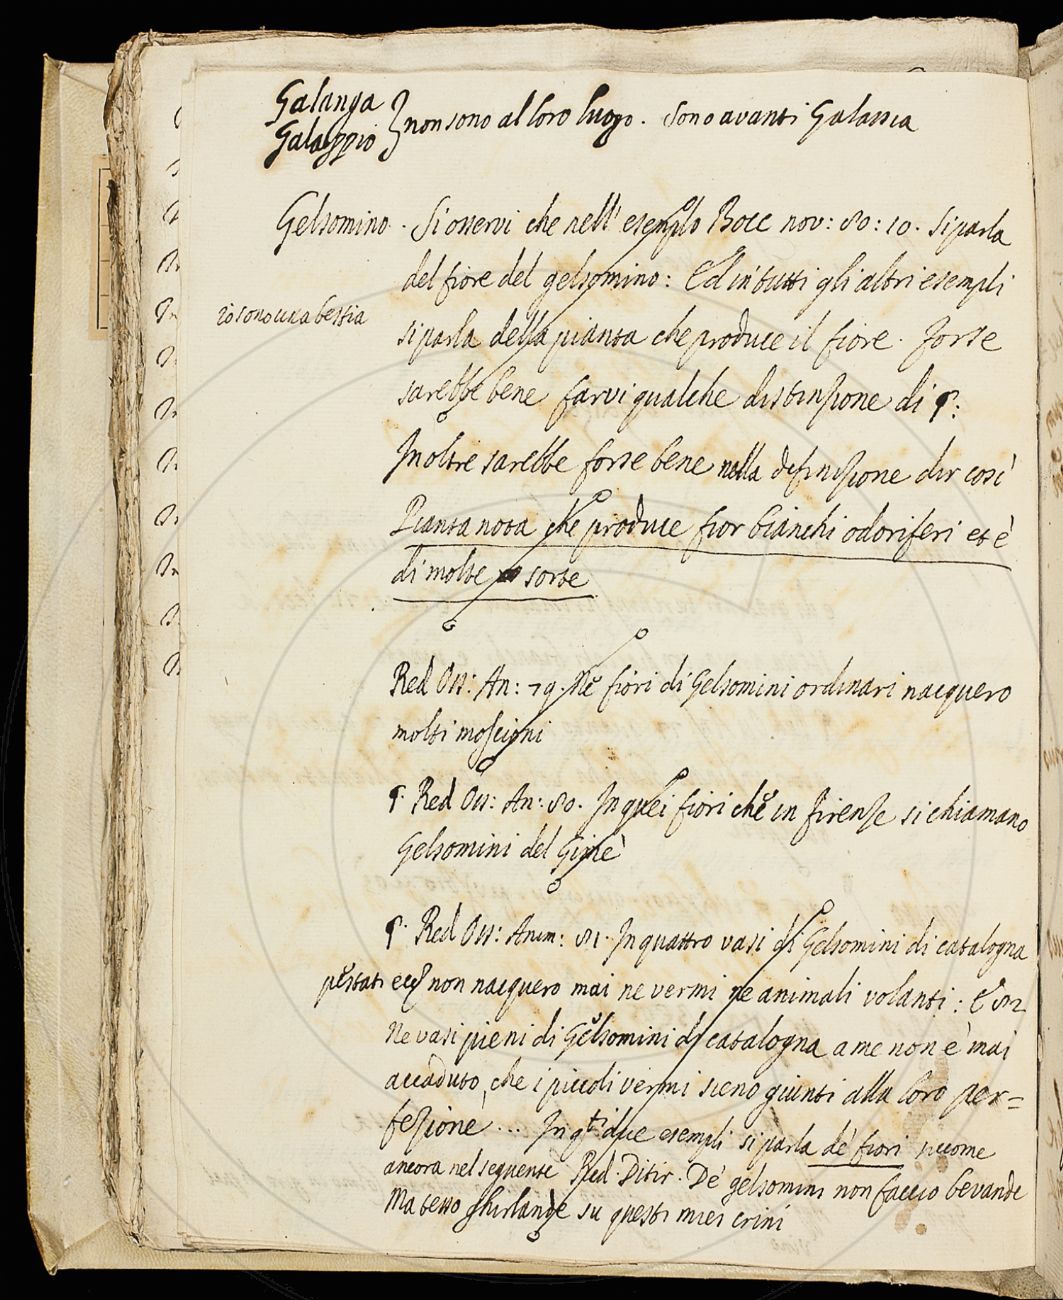 Galanga
Galappio } non sono al loro luogo. Sono avanti Galassia
Gelsomino. Si osservi che nell' esemplo Bocc nov: 80: 10. si parla
del fiore del gelsomino: Ed in tutti gli altri esempli
io sono una bestia
si parla della pianta che produce il fiore. Forse
sarebbe bene farvi qualche distinzione di §:
Inoltre sarebbe forse bene nella definizione dir così
Pianta nota che produce fior bianchi odoriferi et è
di molte sorte
Red Oss: An: 79. Ne fiori di Gelsomini ordinari nacquero
molti moscioni
§. Red Oss: An: 80. In quei fiori che in Firenze si chiamano
Gelsomini del Gimè
§. Red Oss: Anim: 81. In quattro vasi di Gelsomini di catalogna
pestati ec non nacquero mai ne vermi ne animali volanti: E 82
Ne vasi pieni di Gelsomini di catalogna a me non è mai
accaduto, che i piccoli vermi sieno giunti alla loro per=
fezione ... In qti due esempli si parla de fiori siccome
ancora nel seguente Red Ditir. De gelsomini non faccio bevande
Ma tesso ghirlande su questi miei crini